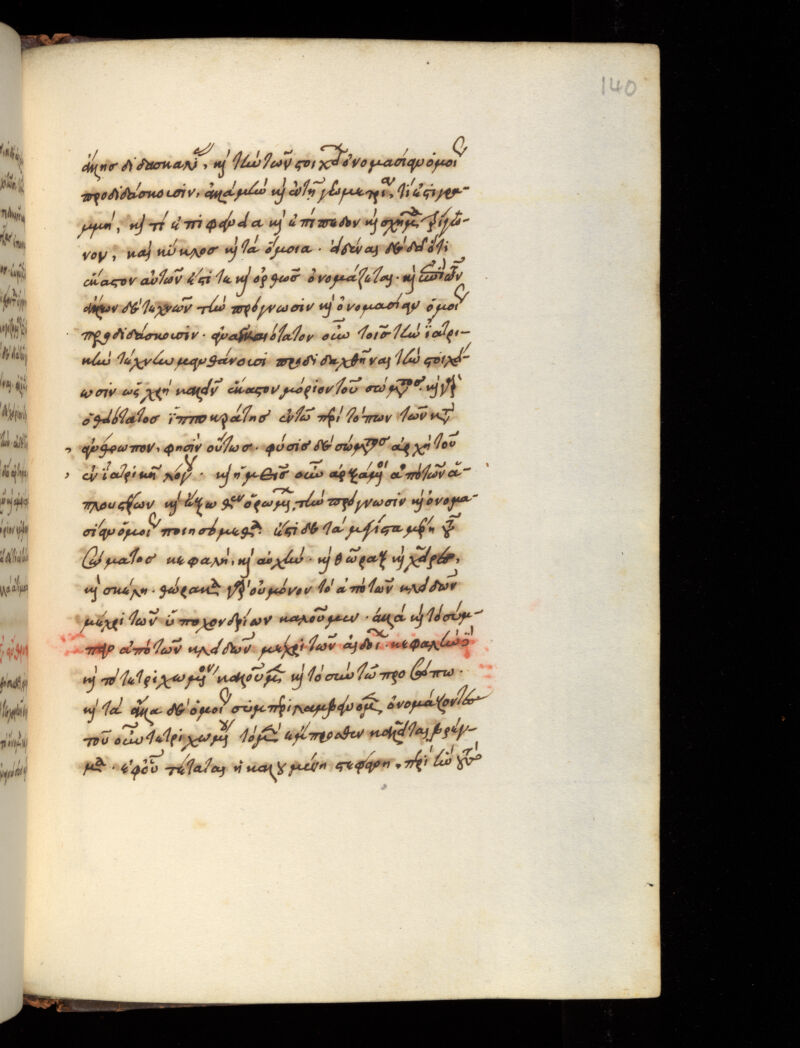 140
διδασκαλ καὶ τὴν τῶν στοιχ ὀνομασίαν ὁμοί
προδιδάσκουσιν. καὶ ἐν τῇ γεωμετρί, τί ἐστι γρα-
μμή, καὶ τί ἐπιφάνεια καὶ ἐπίπεδον καὶ σχῆμα τρίγω-
νον, καὶ κύκλος καὶ τὰ ὅμοια.
ἕκαστον αὐτῶν καὶ ὀρθῶς ὀνομάζεται. καὶ
δὲ τεχνῶν τὴν πρόγνωσιν καὶ ὀνομασίαν ὁμοί
προδιδάσκουσιν. οὖν τοῖς τὴν ἰατρι-
κὴν τέχνην μανθάνουσι προδιδαχθῆναι τὴν
ὡς χρὴ καλεῖν ἕκαστον μόριον τοῦ σώματος. καὶ γὰρ
ὁ θειότατος ἱπποκράτης ἐν τῷ περὶ τόπων τῶν κατ
ἄνθρωπον, φησὶν οὕτως. φύσις δὲ σώματος ἀρχὴ τοῦ
ἐν ἰατρικῇ λόγου. καὶ ἡμεῖς οὖν ἀρξάμενοι ἀπὸ τῶν ἁ-
πλουστέρων καὶ ἔξωθεν ὁρωμένων, τὴν πρόγνωσιν καὶ ὀνομα-
σίαν ὁμοί ποιησόμεθα. ἔστι δὲ τὰ μέγιστα μέρη τοῦ
σώματος κεφαλὴ, καὶ αὐχὴν. καὶ θώραξ καὶ χεῖρες,
καὶ σκέλη. θώρακα γὰρ οὐ μόνον τὸ ἀπὸ τῶν κλειδῶν
μέχρι τῶν ὑποχονδρίων καλοῦμεν. ἀλλὰ καὶ τὸ σύμ-
παν ἀπὸ τῶν κλειδῶν μέχρι τῶν αἰδοί. κεφαλὴν
καὶ τὸ τετριχωμένον καλοῦμεν καὶ τὸ σὺν τῷ προσώπῳ.
καὶ τὰ ἄλλα δὲ ὁμοί συμπεριλαμβανομεν ὀνομάζοντες
τοῦ οὖν τετριχωμένου τὸ μὲν ἔμπροσθεν καλεῖται βρέγ-
μα. ἐφ' οὗ τέταται ἡ καλουμένη στεφάνη, περὶ ἣν